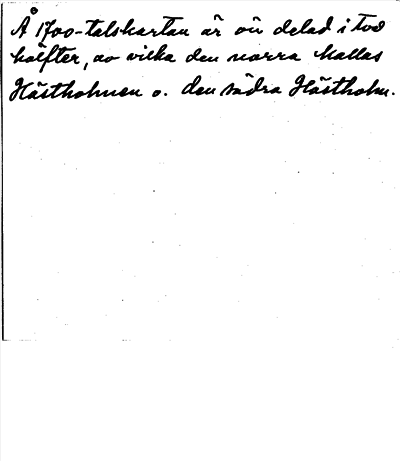 Å 1700-talskartan är ön delad i två
hälfter, av vilka den norra kallas
Hästholmen o. den södra Hästholm.